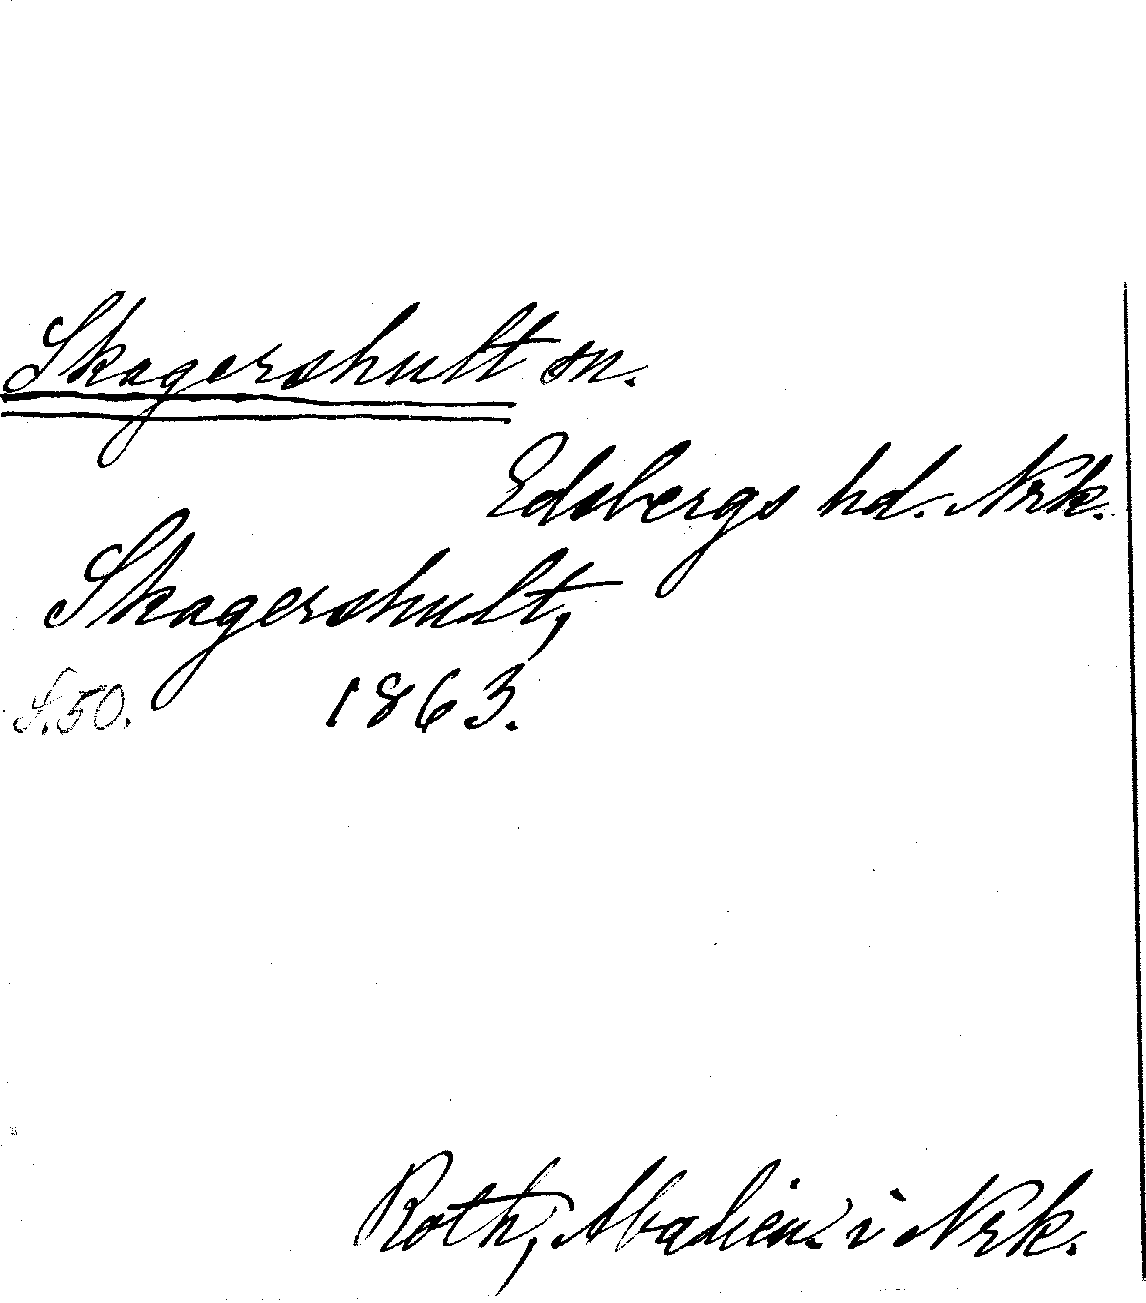 Skagershult sn.
Edsbergs hd. Nrk.
Skagershult,
S. 50. 1863.
Roth, i Nrk.